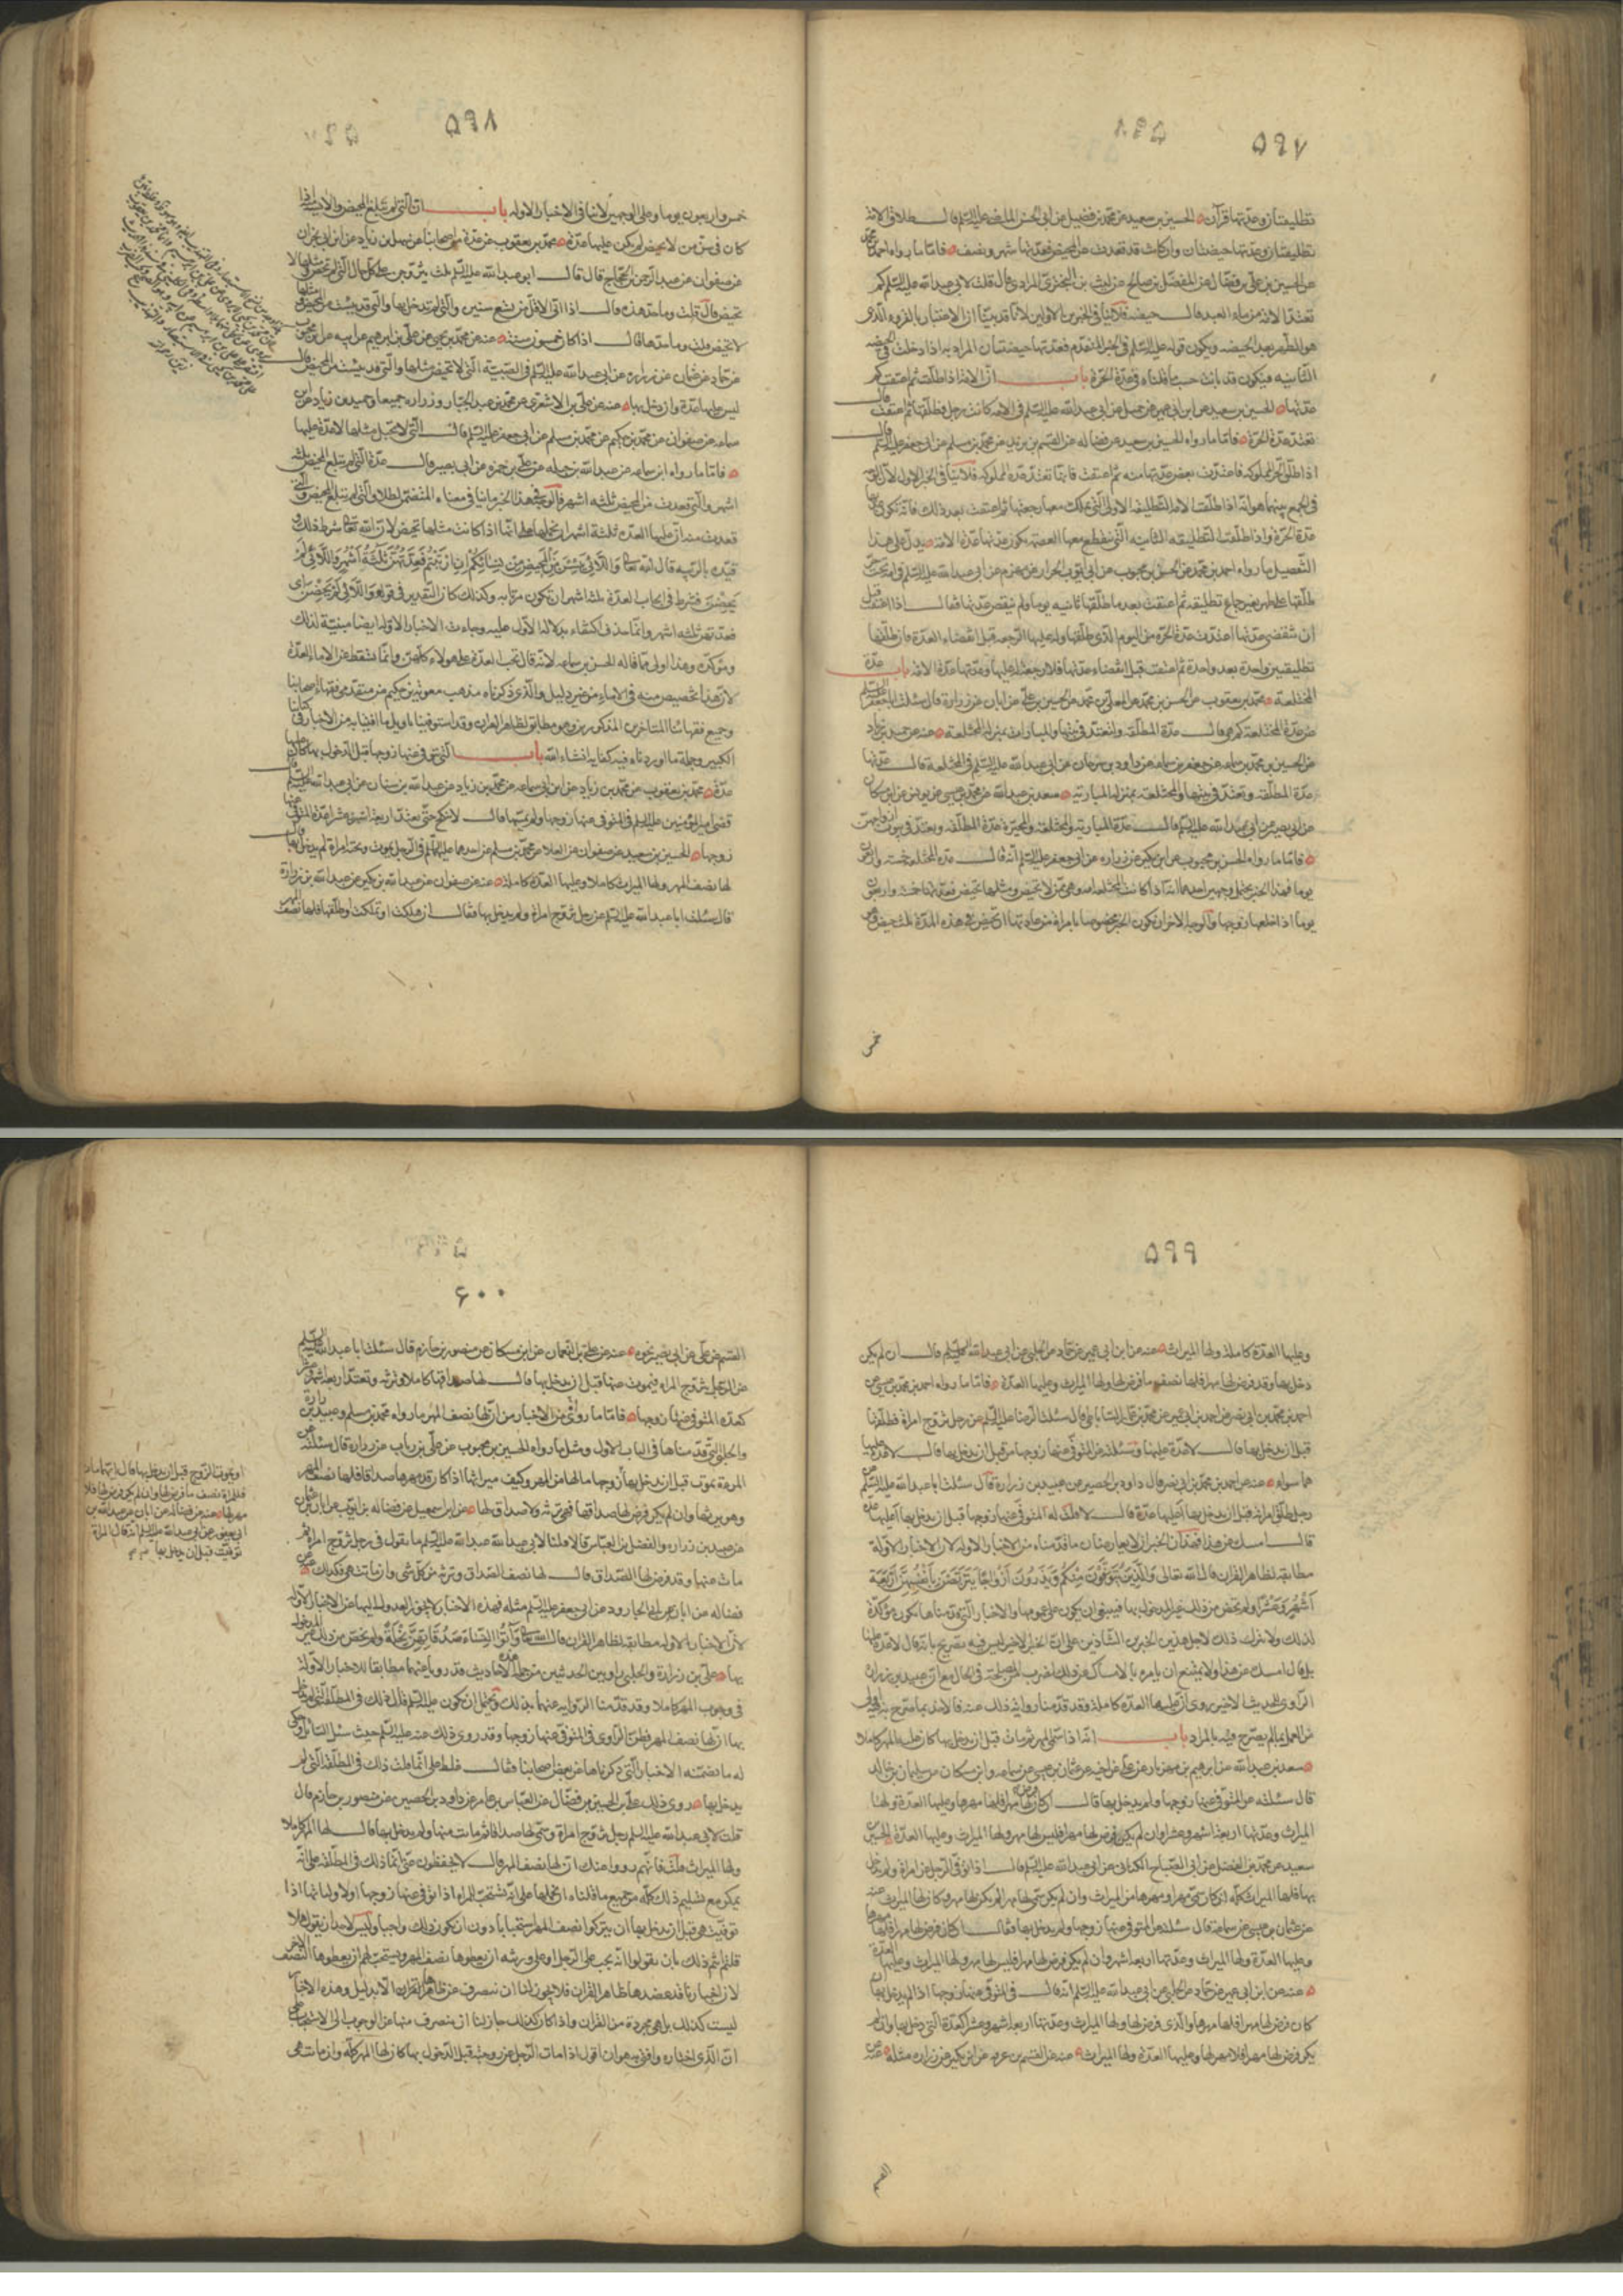 ۵۹۷
تطليقتان وعدتها قرآن الحسين بن سعيد عن محمد بن فضيل عن ابي الحسن الماضي عليه السلم قال طلاق الامة
تطليقتان وعدتها حيضتان وان كانت قد قعدت عن المحيض فعدتها شهر ونصف فاما ما رواه احمد بن محمد
عن الحسين بن علي بن فضال عن المفضل بن صالح عن ليث بن البختري المرادي قال قلت لابي عبد الله عليه السلم كم
تعتد الامة من ماء العبد قال حيضة فلا ينافي الخبرين الاولين لانا قد بينا ان الاعتبار بالقروء الذي
هو الطهر بعد الحيضه ويكون قوله عليه السلم في الخبر المتقدم فعدتها حيضتان المراد به اذا دخلت في الحيضه
الثانيه فيكون قد بانت حسب ما قلناه في عدة الحرة باب ان الامة اذا طلقت ثم اعتقت كم
عدتها الحسين بن سعيد عن ابن ابي عمير عن جميل عن ابي عبد الله عليه السلم في الامه كانت تحت رجل فطلقها ثم اعتقت قال
تعتد عدة الحرة فاما ما رواه الحسين بن سعيد عن فضاله عن القسم بن بريد عن محمد بن مسلم عن ابي جعفر عليه السلم قال
اذا طلق الحر المملوكه فاعتدت بعض عدتها منه ثم اعتقت فانها تعتد عدة المملوكه فلا ينافي الخبر الاول لان الوجه
في الجمع بينهما هو انه اذا طلقت الامه التطليقه الاولى التي يملك معها رجعتها ثم اعتقت بعد ذلك فانه تكون عدتها
عدة الحرة واذا طلقت التطليقه الثانيه التي ينقطع معها العصمه يكون عدتها عدة الامه يدل على هذا
التفصيل ما رواه احمد بن محمد عن الحسن بن محبوب عن ابي ايوب الخراز عن مهزم عن ابي عبد الله عليه السلم في امة تحت حر
طلقها على طهر بغير جماع تطليقه ثم اعتقت بعد ما طلقها بثلثين يوما ولم تنقض عدتها فقال اذا اعتقت قبل
ان تنقضي عدتها اعتدت عدة الحرة من اليوم الذي طلقها وله عليها الرجعه قبل انقضاء العدة فان طلقها
تطليقتين واحدة بعد واحدة ثم اعتقت قبل انقضاء عدتها فلا رجعة له عليها وعدتها عدة الامه باب عدة
المختلعة محمد بن يعقوب عن الحسين بن محمد عن المعلى بن محمد عن الحسن بن علي عن ابان عن زرارة قال سئلت ابا جعفر عليه السلم
عن عدة المختلعة كم هي قال عدة المطلقه ولتعتد في بيتها والمبارات بمنزلة المختلعة عنه عن حميد بن زياد
عن الحسن بن محمد بن سماعه عن جعفر بن سماعه عن داود بن سرحان عن ابي عبد الله عليه السلم في المختلعة قال عدتها
عدة المطلقه وتعتد في بيتها والمختلعة بمنزله المباريه سعد بن عبد الله عن محمد بن عيسى عن يونس عن ابن مسكان
عن ابي بصير عن ابي عبد الله عليه السلم قال عدة المباريه والمختلعه والمخيرة عدة المطلقه ويعتددن في بيوت ازواجهن
فاما ما رواه الحسن بن محبوب عن ابن بكير عن زراره عن ابي جعفر عليه السلم انه قال عدة المختلعة خمسه واربعون
يوما فهذا الخبر يحتمل وجهين احدهما انه اذا كانت المختلعه امة وهي ممن لا تحيض ومثلها تحيض فعدتها خمسه واربعون
يوما اذا خلعها زوجها والوجه الاخر ان يكون الخبر مخصوصا بامراة من عادتها ان تحيض في هذه المدة ثلث حيض في
خمس
۵۹۸
خمس واربعون يوما وعلى الوجهين لا ينافي الاخبار الاوله باب ان التي لم تبلغ المحيض والآيسه اذا
كان في سن من لا تحيض لم يكن عليهما عدة محمد بن يعقوب عن عدة من اصحابنا عن سهل بن زياد عن ابن ابي نجران
عن صفوان عن عبد الرحمن بن الحجاج قال قال ابو عبد الله عليه السلم ثلث يتزوجن على كل حال التي لم تحض ومثلها لا
تحيض قال قلت وما حد هذه قال اذا اتى لها اقل من تسع سنين والتي لم يدخل بها والتي قد يئست من المحيض ومثلها
لا تحيض قلت وما حدها قال اذا كان خمسون سنة عنه عن محمد بن يحيى عن علي بن ابرهيم عن ابيه عن ابن محبوب
عن حماد بن عثمان عن زراره عن ابي عبد الله عليه السلم في الصبية التي لا تحيض مثلها والتي قد يئست من المحيض قال
ليس عليها عدة وان دخل بها عنه عن ابي علي الاشعري عن محمد بن عبد الجبار والرزاز جميعا وحميد بن زياد عن ابن
سماعه عن صفوان عن محمد بن حكيم عن محمد بن مسلم عن ابي جعفر عليه السلم قال التي لا تحبل مثلها لا عدة عليها
فاما ما رواه ابن سماعه عن عبد الله بن جبله عن علي بن ابي حمزه عن ابي بصير قال عدة التي لم تبلغ المحيض ثلثه
اشهر والتي قعدت عن المحيض ثلثه اشهر فالوجه في هذا الخبر ما رواه
قعدت منه ان عليها العده ثلثة اشهر ان نحملها على انها اذا كانت مثلها تحيض لان الله تعالى شرط ذلك و
قيده بالريبه قال الله تعالى وَاللَّائِي يَئِسْنَ مِنَ الْمَحِيضِ مِنْ نِسَائِكُمْ إِنِ ارْتَبْتُمْ فَعِدَّتُهُنَّ ثَلَاثَةُ أَشْهُرٍ وَاللَّائِي لَمْ
يَحِضْنَ فشرط في ايجاب العدة ثلثة اشهر ان تكون مرتابه وكذلك كان التقدير في قوله وَاللَّائِي لَمْ يَحِضْنَ اي
فعدتهن ثلثه اشهر وانما حذف اكتفاء بدلالة الاول عليه وجاءت الاخبار الاوله ايضا مبنية لذلك
ومؤكدة وهذا اولى مما قاله الحسن بن سماعه لانه قال تجب العدة على هولاء كلهن وانما تسقط عن الاماء العدة
لان هذا تخصيص منه في الاماء من غير دليل والذي ذكرناه مذهب معوية بن حكيم من متقدمي فقهاء اصحابنا
وجميع فقهائنا المتاخرين المذكورين وهو مطابق لظاهر القران وقد استوفينا تاويل ما افتينا به من الاخبار في كتابنا
الكبير وجملة ما اوردناه فيه كفايه انشاء الله باب التي توفي عنها زوجها قبل الدخول بها كان عليها
عدة محمد بن يعقوب عن حميد بن زياد عن ابن سماعه عن محمد بن زياد عن عبد الله بن سنان عن ابي عبد الله عليه السلم قال
قضى امير المؤمنين عليه السلم في المتوفى عنها زوجها ولم يمسها قال لا تنكح حتى تعتد اربعة اشهر وعشرا عدة المتوفى عنها
زوجها الحسين بن سعيد عن صفوان عن العلا عن محمد بن مسلم عن احدهما عليهما السلم في الرجل يموت وتحته امراة لم يدخل بها قال
لها نصف المهر ولها الميراث كاملا وعليها العدة كامله عنه عن صفوان عن عبد الله بن بكير عن عبيد الله بن زرارة
قال سئلت ابا عبد الله عليه السلم عن رجل تزوج امراة ولم يدخل بها فقال ان هلكت او هلك او طلقها فلها نصف
۵۹۹
وعليها العدة كاملة ولها الميراث عنه عن ابن ابي عمير عن حماد عن الحلبي عن ابي عبد الله عليه السلم قال ان لم يكن
دخل بها وقد فرض لها مهرا فلها نصف ما فرض لها ولها الميراث وعليها العدة فاما ما رواه احمد بن محمد بن عيسى عن
احمد بن محمد بن ابي نصر عن محمد بن عمر الساباطي قال سئلت الرضا عليه السلم عن رجل تزوج امراة فطلقها
قبل ان يدخل بها قال لا عدة عليها وسئلته عن المتوفى عنها زوجها من قبل ان يدخل بها قال لا عدة عليها
هما سواء عنه عن احمد بن محمد بن ابي نصر قال داود بن الحصين عن عبيد بن زرارة قال سئلت ابا عبد الله عليه السلم عن
رجل طلق امراته قبل ان يدخل بها أعليها عدة قال لا قلت له المتوفى عنها زوجها قبل ان يدخل بها أعليها عدة
قال امسك عن هذا فهذان الخبران لا يعارضان ما قدمناه من الاخبار الاوله لان الاخبار الاولة
مطابقه لظاهر القران قال الله تعالى وَالَّذِينَ يُتَوَفَّوْنَ مِنْكُمْ وَيَذَرُونَ أَزْوَاجًا يَتَرَبَّصْنَ بِأَنْفُسِهِنَّ أَرْبَعَةَ
أَشْهُرٍ وَعَشْرًا ولم يخص من ذلك غير المدخول بها فينبغي ان يكون على عمومها والاخبار التي قدمناها تكون مؤكدة
لذلك ولا نترك ذلك لاجل هذين الخبرين الشاذين على ان الخبر الاخير ليس فيه تصريح بانه قال لا عدة عليها
بل قال امسك عن هذا ولا يمتنع ان يامره بالامساك عن ذلك لضرب من المصلحة في الحال مع ان عبيد بن زراره
الراوي للحديث الاخير روى ان عليها العدة كاملة وقد قدمنا روايته ذلك عنه فالاخذ بما صرح به اولى
من العمل بما لم يصرح وفيه بالمراد باب انه اذا سمى المهر ثم مات قبل ان يدخل بها كان عليه المهر كاملا
سعد بن عبد الله عن ابرهيم بن مهزيار عن علي عن اخيه عن عثمان بن عيسى عن سماعه وابن مسكان عن سليمان بن خالد
قال سئلته عن المتوفى عنها زوجها ولم يدخل بها قال ان كان فرض لها مهرا فلها مهرها وعليها العدة ولها
الميراث وعدتها اربعة اشهر وعشرا وان لم يكن فرض لها مهرا فليس لها مهر ولها الميراث وعليها العدة الحسين بن
سعيد عن محمد بن الفضيل عن ابي الصباح الكناني عن ابي عبد الله عليه السلم قال اذا توفي الرجل عن امراة ولم يدخل
بها فلها الميراث كله ان كان سمى مهرا وسهمها من الميراث وان لم يكن سمى لها مهرا لم يكن لها مهر وكان لها الميراث عنه
عن عثمان بن عيسى عن سماعة قال سئلته عن المتوفى عنها زوجها ولم يدخل بها فقال ان كان فرض لها مهرا فلها مهرها
وعليها العدة ولها الميراث وعدتها اربعة اشهر وان لم يكن فرض لها مهرا فليس لها مهر ولها الميراث وعليها العدة
عنه عن ابن ابي عمير عن حماد عن الحلبي عن ابي عبد الله عليه السلم انه قال في المتوفى عنها زوجها اذا لم يدخل بها ان
كان فرض لها مهرا فلها مهرها والذي فرض لها ولها الميراث وعدتها اربعة اشهر وعشر كعدة التي دخل بها وان لم
يكن فرض لها مهرا فلا مهر لها وعليها العدة ولها الميراث عنه عن القسم بن عروه عن ابن بكير عن زراره مثله عنه عن
القسم
۶۰۰
القسم عن علي عن ابي بصير نحوه عنه عن علي بن النعمان عن ابن مسكان عن منصور بن حازم قال سئلت ابا عبد الله عليه السلم
عن الرجل يتزوج المراه فيموت عنها قبل ان يدخل بها قال لها صداقها كاملا وترثه وتعتد اربعة اشهر وعشرا
كعدة المتوفى عنها زوجها فاما ما روي من الاخبار من ان لها نصف المهر ما رواه محمد بن مسلم وعبيد بن زرارة
والحلبي التي قدمناها في الباب الاول ومثل ما رواه الحسين بن محبوب عن علي بن رئاب عن زراره قال سئلته عن
المرءة تموت قبل ان يدخل بها زوجها ما لها من المهر وكيف ميراثها اذا كان قد مهرها صداقا فلها نصف المهر
وهو يرثها وان لم يكن فرض لها صداقا فهي ترثه ولا صداق لها
عن عبيد بن زراره والفضل ابن العباس قالا قلنا لابي عبد الله عليه السلم ما تقول في رجل تزوج امراة ثم
مات عنها وقد فرض لها الصداق قال لها نصف الصداق وترثه من كل شى وان ماتت هي فكذلك عنه عن
فضاله عن ابان عن ابي الجارود عن ابي جعفر عليه السلم مثله فهذه الاخبار لا يجوز العدول اليها عن الاخبار الاوله
لان الاخبار الاوله مطابقه لظاهر القران قال الله تعالى وَآتُوا النِّسَاءَ صَدُقَاتِهِنَّ نِحْلَةً ولم يخص من ذلك غير المدخول
بها على ان زرارة والحلبي راويين الحديثين من جملة الاحاديث قد رويا عنهما مطابقا للاخبار الاولة
في وجوب المهر كاملا وقد قدمنا الرواية عنهما بذلك ويحتمل ان يكون عليه السلم قال ذلك في المطلقة التي لم يدخل
بها ان لها نصف المهر فظن الراوي في المتوفى عنها زوجها وقد روى ذلك عنه عليه السلم حيث سئل السائل وحكى
له ما تضمنه الاخبار التي ذكرناها عن بعض اصحابنا فقال غلط علي انما قلت ذلك في المطلقه التي لم
يدخل بها روى ذلك علي بن الحسين بن فضال عن العباس بن عامر عن داود بن الحصين عن منصور بن حازم قال
قلت لابي عبد الله عليه السلم رجل تزوج امراة وسمى لها صداقا ثم مات عنها ولم يدخل بها قال لها المهر كاملا
ولها الميراث قلت فانهم رووا عنك ان لها نصف المهر قال لا يحفظون عني انما ذلك في المطلقه على انه
يمكن مع تسليم ذلك كله مع جميع ما قلناه ان نحملها على انه تستحب للمراه اذا توفي عنها زوجها او لاوليائها اذا
توفيت هي قبل ان يدخل بها ان يتركوا نصف المهر استحبابا دون ان يكون ذلك واجبا وليس لاحد ان يقول هلا
قلتم ذلك بان تقولوا انه يجب على الرجل او على ورثته ان يعطوها نصف المهر ويستحب لهم ان يعطوها النصف الاخر
لان اخبارنا قد عضدها ظاهر القران فلا يجوز لنا ان ننصرف عن ظاهر القران الا بدليل وهذه الاخبار
ليست كذلك بل هي مجردة من القران واذا كان كذلك جاز لنا ان ننصرف عنها عن الوجوب الى الاستحباب على
ان الذي اختاره وافتي به هو ان اقول اذا مات الرجل عن زوجته قبل الدخول بها كان لها المهر كله وان ماتت هي
او يموت الزوج قبل ان يدخل بها قال ايهما مات
فللمراة نصف ما فرض لها وان لم يكن فرض لها فلا
مهر لها عنه عن فضاله عن ابان عن عبد الله بن
ابي يعفور عن ابي عبد الله عليه السلم انه قال في امراة
توفيت قبل ان يدخل بها